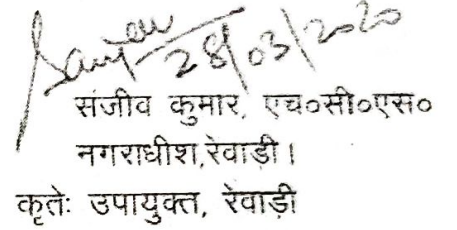 Sanjeev
28/03/2020
संजीव कुमार, एच०सी०एस०
नगराधीश,रेवाडी।
कृतेः उपायुक्त, रेवाड़ी